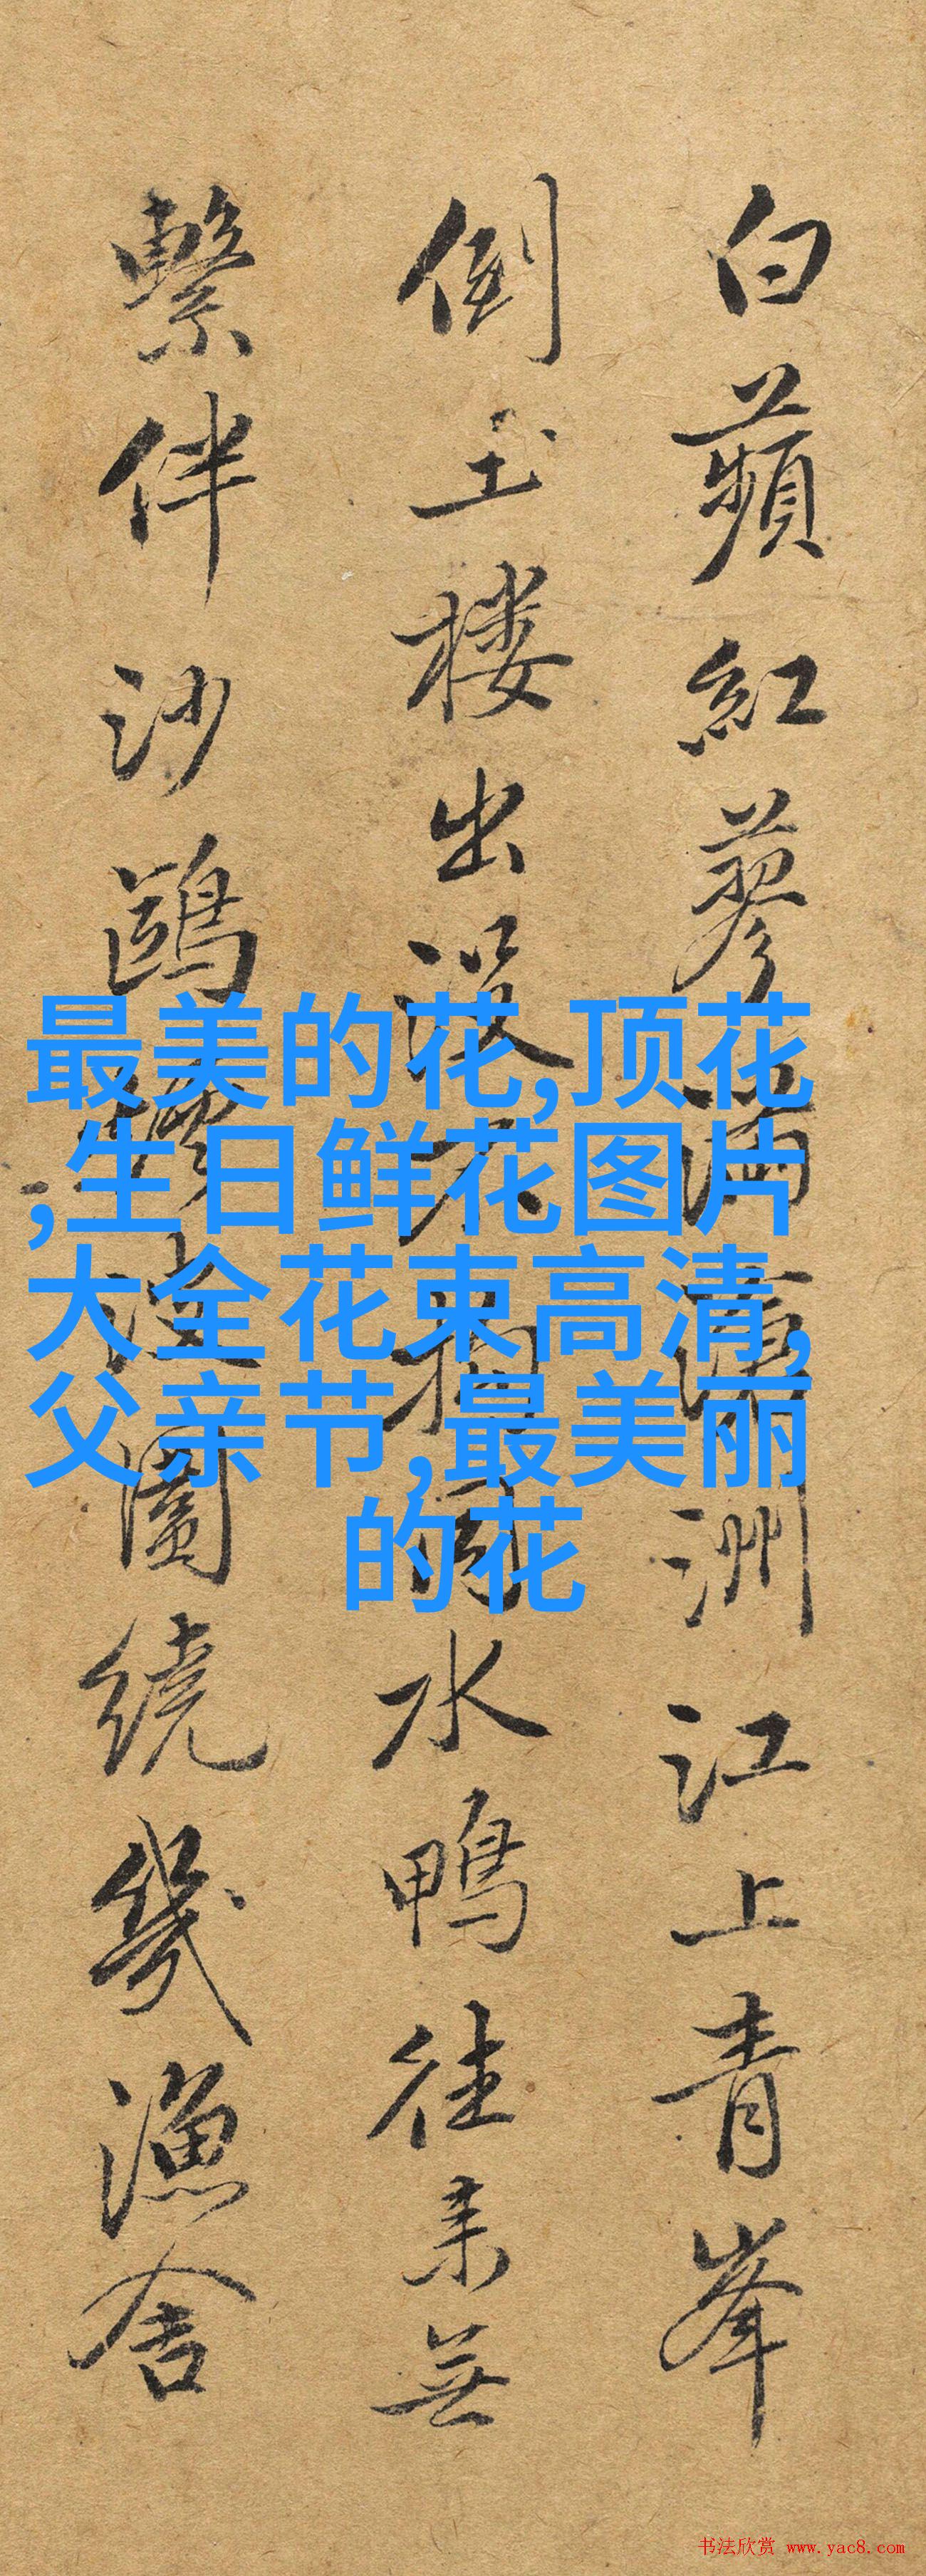 白蘋紅蓼滿滄洲江上青峯
倒玉楼出没不拘同水鴨往来無
繫伴沙鷗
圍繞幾漁舍
最美的花,顶花
,生日鲜花图片
大全花束高清,
父亲节,最美丽
的花
书法欣赏 www.yac8.com